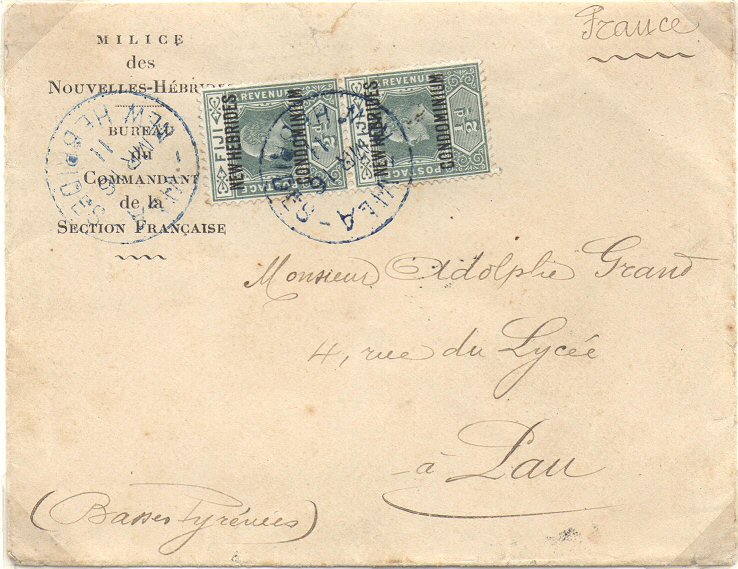 MILICE
des
NOUVELLES-HÉBRIDES
BUREAU
du
COMMANDANT
de la
SECTION FRANÇAISE
France
FIJI
REVENUE
NEW HEBRIDES
CONDOMINIUM
POSTAGE
REVENUE
NEW HEBRIDES
CONDOMINIUM
POSTAGE
½D
VILA - NEW HEBRIDES
Monsieur Adolphe Grand
4, rue du Lycée
à Pau
(Basses Pyrénées)